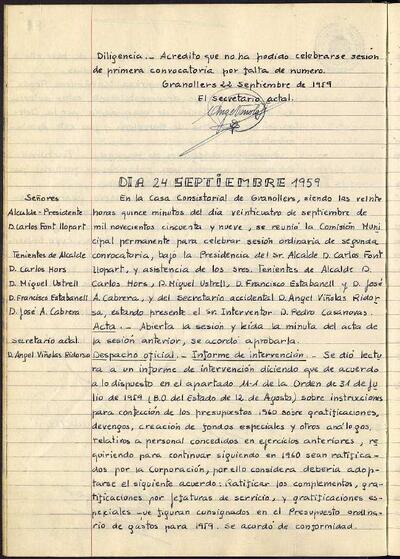 Diligencia.- Acredito que no ha podido celebrarse sesión
de primera convocatoria por falta de numero.
Granollers 22 septiembre de 1959
El secretario actal.
DIA 24 SEPTIEMBRE 1959
Señores
Alcalde-Presidente
D. Carlos Font Llopart
Tenientes de Alcalde
D. Carlos Hors
D. Miguel Ustrell
D. Francisco Estabanell
D. José A. Cabrera
Secretario actal
D. Angel Viñolas Ridorsa
En la Casa Consistorial de Granollers, siendo las veinte
horas quince minutos del día veinticuatro de septiembre de
mil novecientos cincuenta y nueve, se reunió la Comisión Muni
cipal permanente para celebrar sesión ordinaria de segunda
convocatoria, bajo la Presidencia del Sr. Alcalde D. Carlos Font
Llopart, y asistencia de los sres. Tenientes de Alcalde D.
Carlos Hors, D. Miguel Ustrell, D. Francisco Estabanell y D. José
A. Cabrera, y del Secretario accidental D. Angel Viñolas Ridor-
sa, estando presente el Sr. Interventor D. Pedro Casanovas.
Acta.- Abierta la sesión y leida la minuta del acta de
la sesión anterior, se acordo aprobarla.
Despacho oficial.- Informe de intervención.- Se dió lectu
ra a un informe de intervención diciendo que de acuerdo
a lo dispuesto en el apartado 11-1 de la Orden de 31 de Ju
lio de 1959 (B.O del Estado de 12 de Agosto), sobre instrucciones
para confección de los presupuestos 1960 sobre gratificaciones,
devengos, creación de fondos especiales y otros análogos,
relativos a personal concedidos en ejercicios anteriores, re
quiriendo para continuar siguiendo en 1960 sean ratifica-
dos por la Corporación, por ello considera debería adop-
tarse el siguiente acuerdo: Ratificar los complementos, gra-
tificaciones por jefaturas de servicio, y gratificaciones es-
peciales que figuran consignados en el Presupuesto ordina-
rio de gastos para 1959. Se acordó de conformidad.